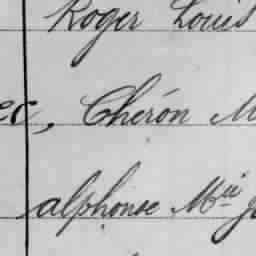 Roger Louis
ec, Chérón M
alphonse Mie